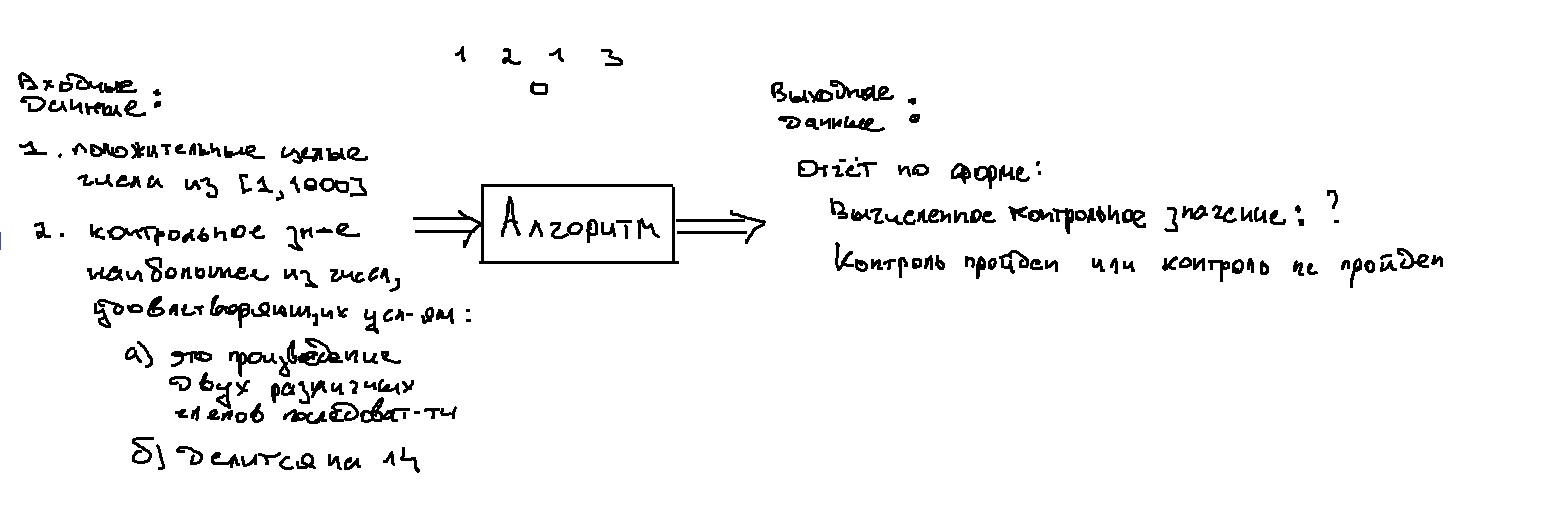 1 2 1 3
Входные
Данные :
1. положительные целые
числа из [1, 1000]
2. контрольное зн-е
наибольшее из чисел,
удовлетворяющих усл-ям:
а) это произведение
двух различных
членов последоват-ти
б) Делится на 14
Алгоритм
Выходные
данные :
Отчёт по форме:
Вычисленное контрольное значение: ?
Контроль пройден или контроль не пройден